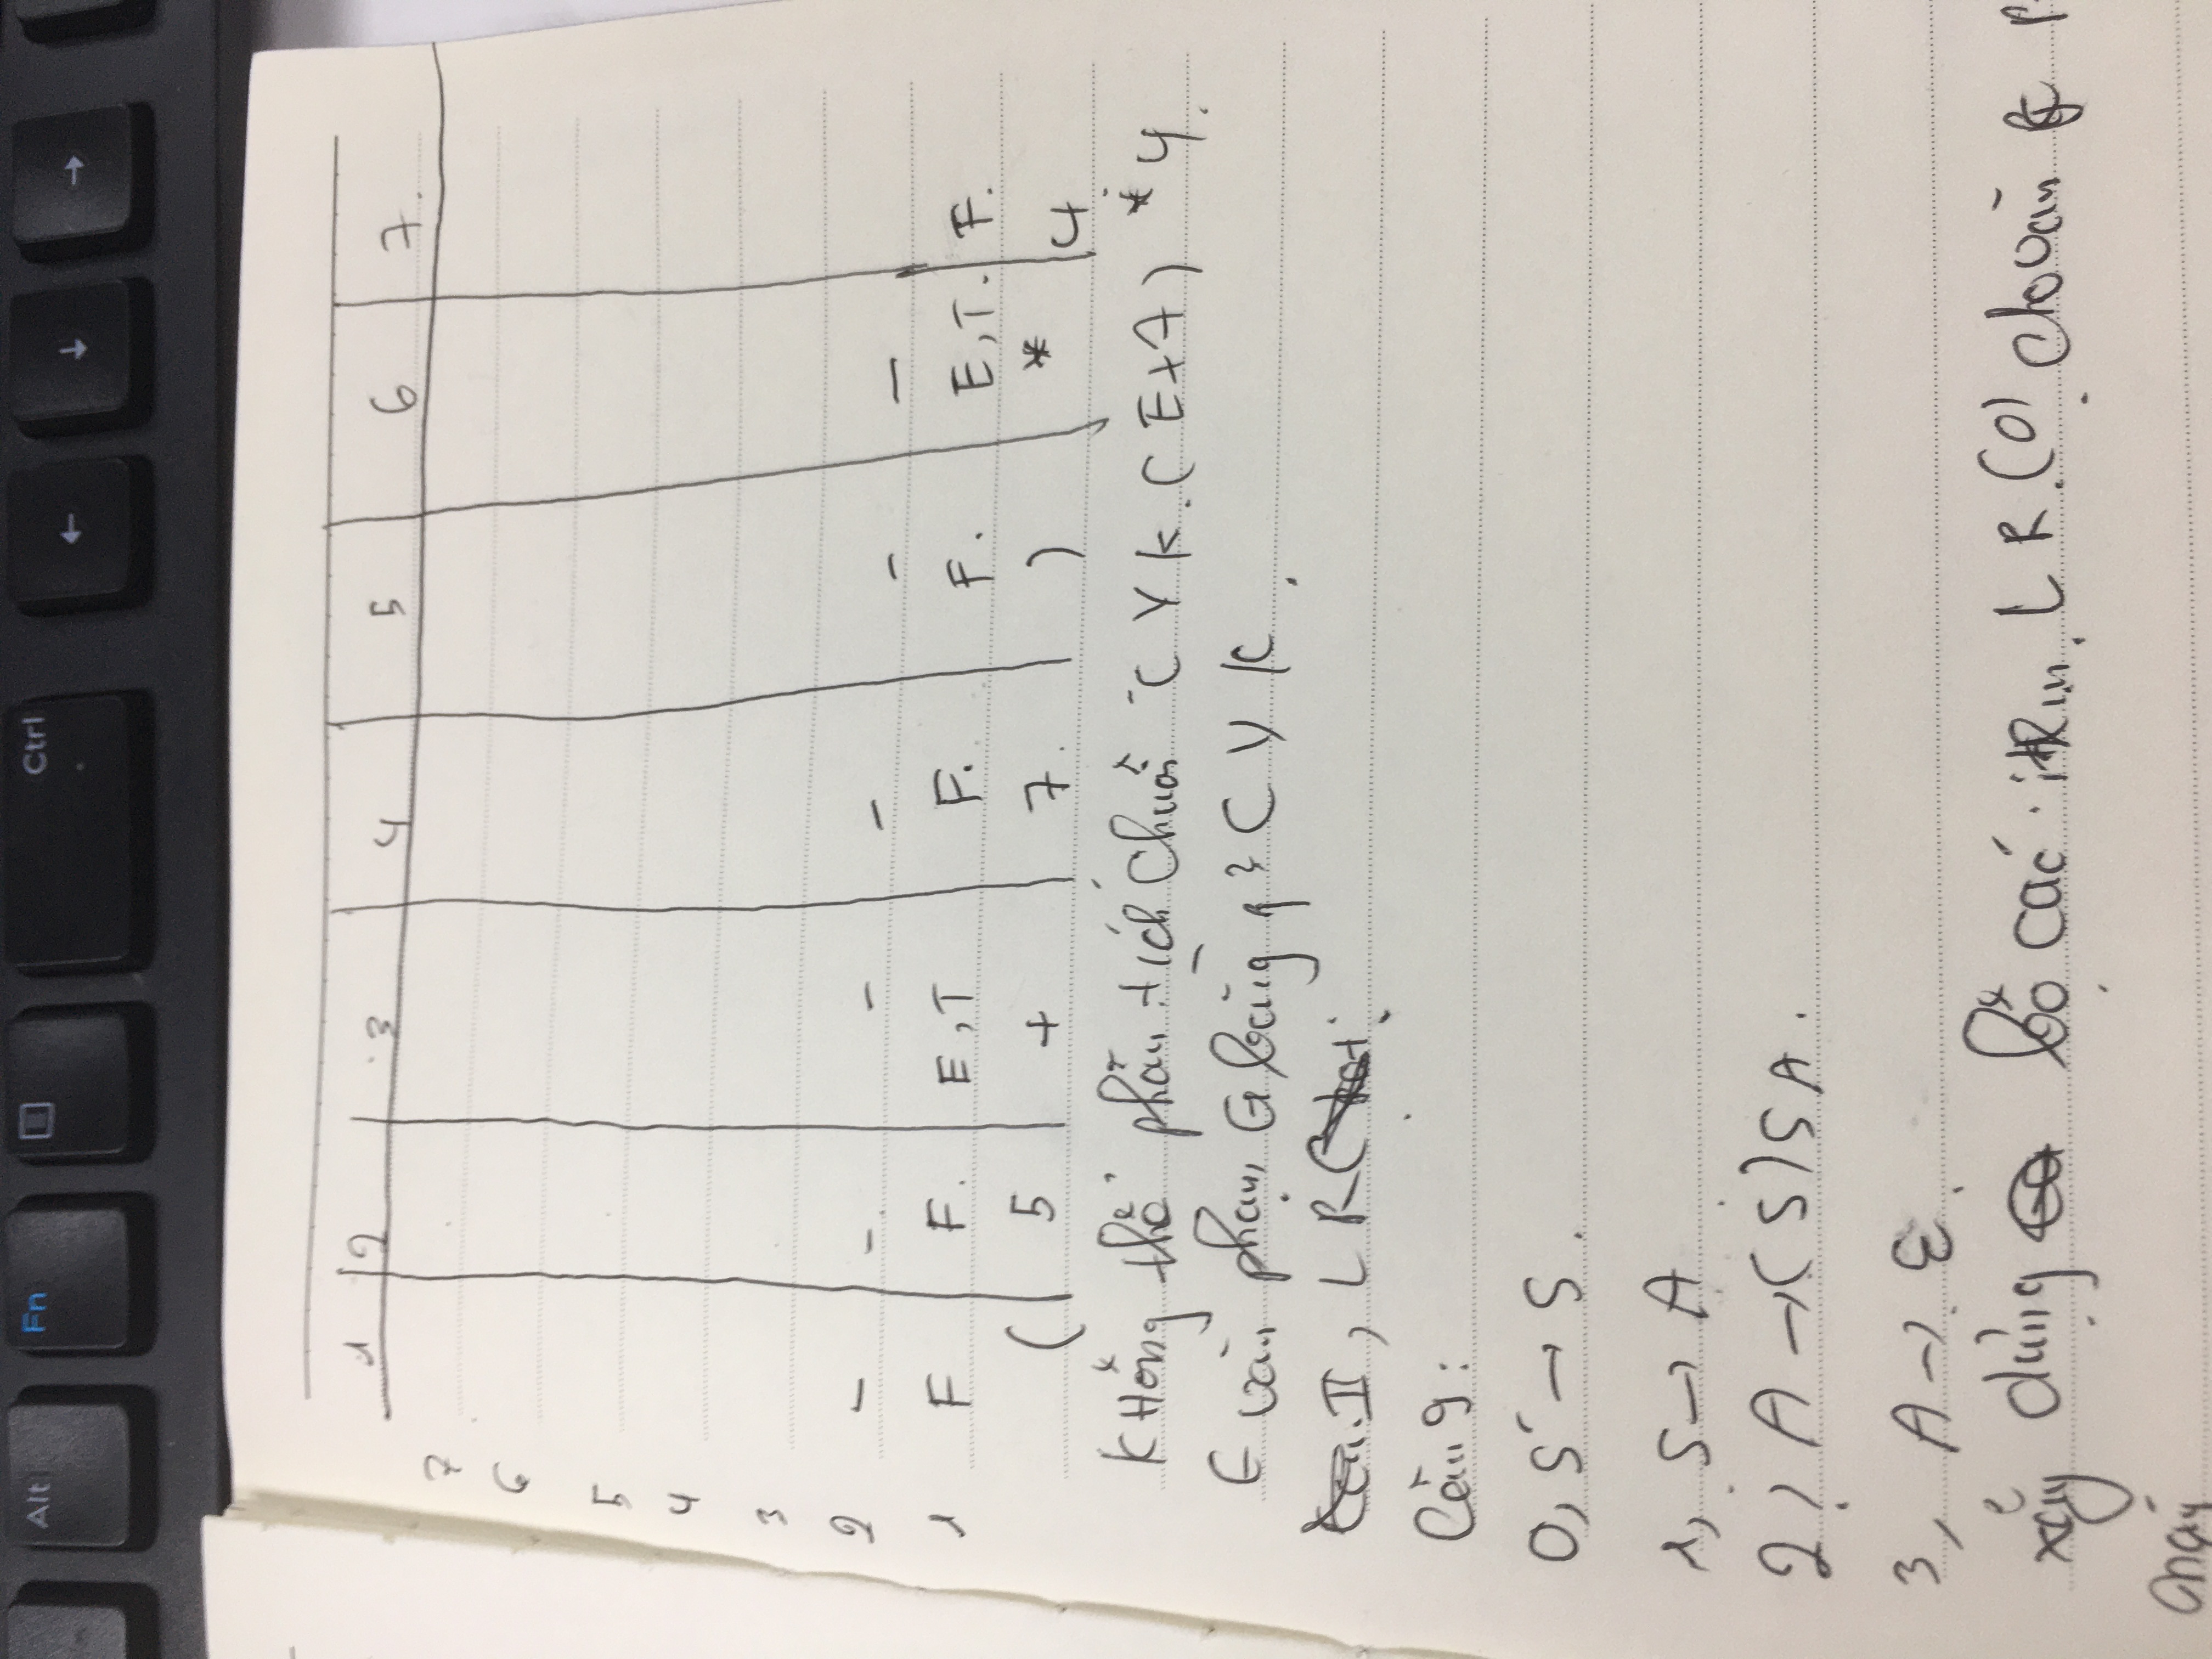 Alt Fn Ctrl ← ↓ →
1 2 3 4 5 6 7.
7
6
5
4
3
2 – – – – – –
1 F F. E,T F. F. E,T. F.
( 5 + 7. ) * 4
Không thể phân tích chuỗi CYK.(E+7) * 4.
E văn phạm G bằng p² CYK.
II, LR(
Câu 9:
0, S' → S.
1, S → A
2, A → (S)SA.
3, A → ε.
xây dựng bộ các item LR(0) cho văn p
này